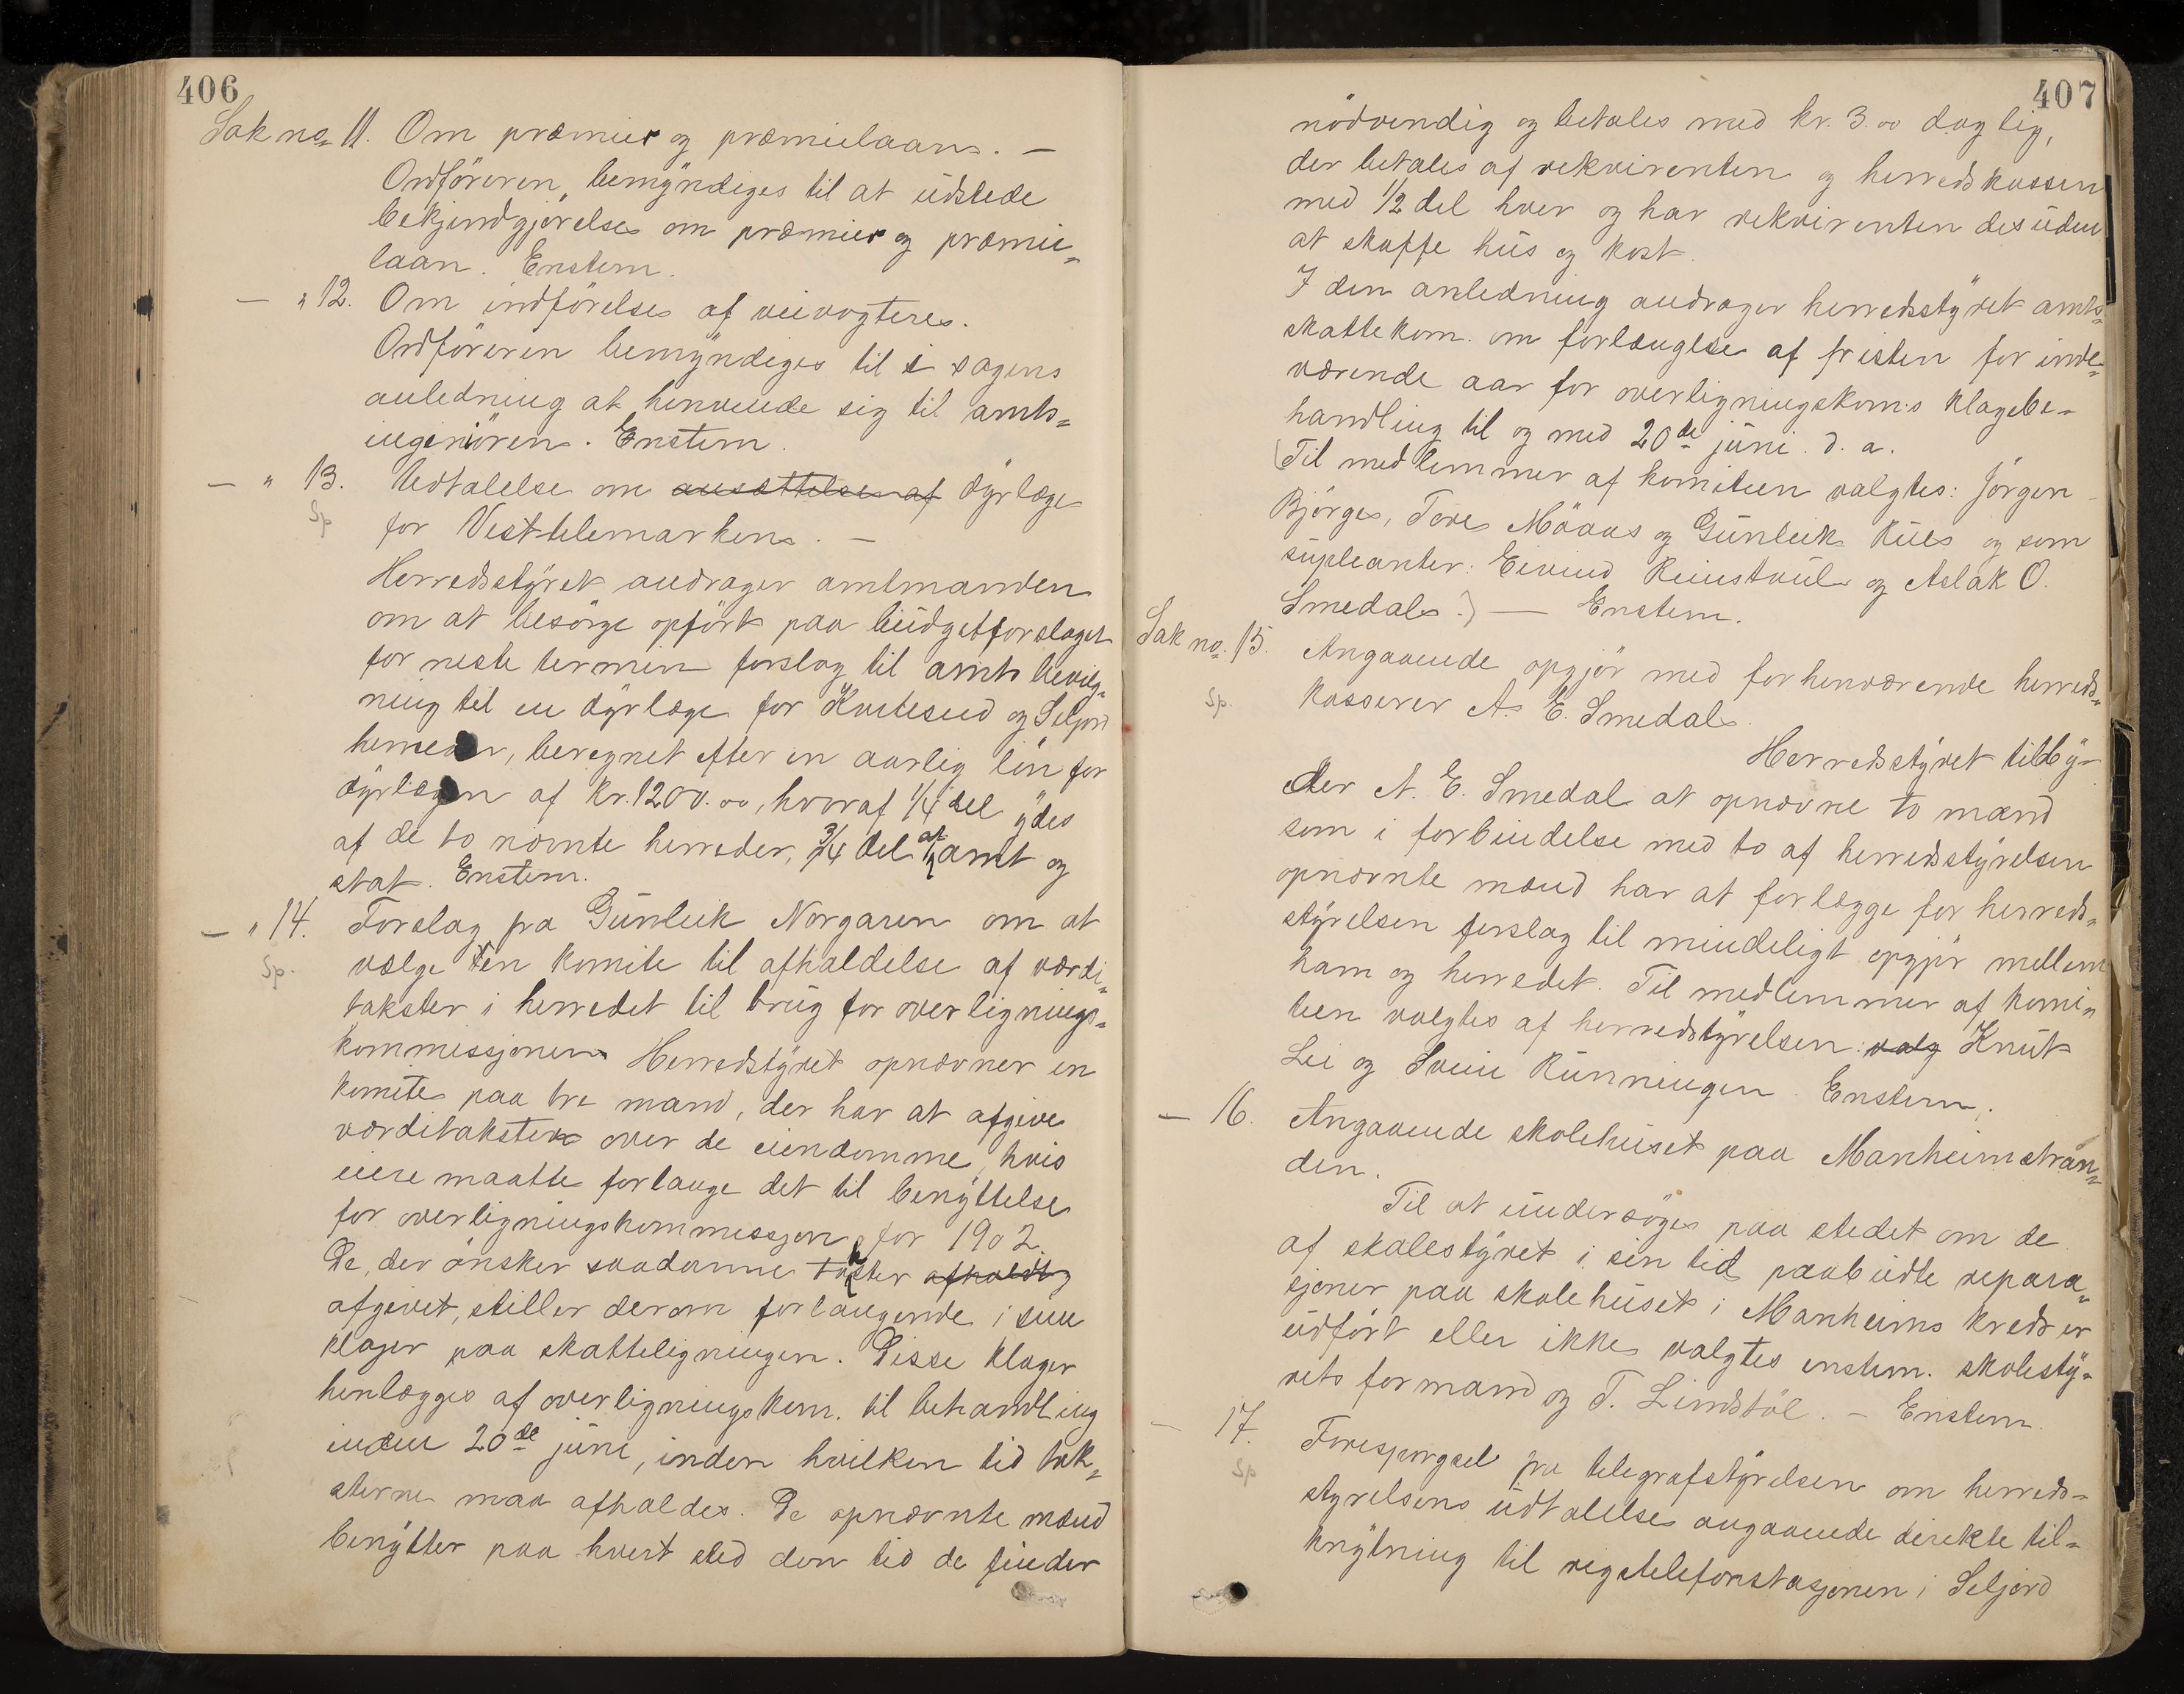 406
Sak no. 11. Om præmier og præmielaan. —
Ordföreren bemyndiges til at udstede
bekjendgjörelse om præmier og præmie-
laan. Enstem.
— " 12. Om indförelse af veivogtere.
Ordföreren bemyndiges til i sagens
anledning at henvende sig til amts-
ingeniören. Enstem.
— " 13. Udtalelse om ansættelse af dyrlæge
Sp
for Vest-telemarken. —
Herredsstyret andrager amtmanden
om at besörge opfört paa budgetforslaget
for neste termin forslag til amts bevilg-
ning til en dyrlæge for Kviteseid og Seljord
herreder, beregnet efter en aarlig lön for
dyrlægen af kr. 1200.00, hvoraf 1/4 del ydes
af de to nævnte herreder, 3/4 del af amt og
stat. Enstem.
— " 14. Forslag fra Gunleik Norgaren om at
Sp.
vælge en komite til afholdelse af værdi-
takster i herredet til brug for overlignings-
kommissjonen. Herredstyret opnævner en
komite paa tre mand, der har at afgive
værditakster over de eiendomme, hvis
eiere maatte forlange det til benyttelse
for overligningskommissjon for 1902
De, der önsker saadanne takster afholdt
afgivet, stiller derom forlangende i sine
klager paa skatteligningen. Disse klager
henlægges af overligningskom. til behandling
inden 20de juni, inden hvilken tid tak-
sterne maa afholdes. De opnævnte mænd
benytter paa hvert sted den tid de finder
407
nödvendig og betales med kr. 3.00 daglig,
der betales af rekvirenten og herredskassen
med 1/2 del hver og har rekvirenten desuden
at skaffe hus og kost.
I den anledning andrager herredsstyret amts-
skattekom. om forlængelse af fristen for inde-
værende aar for overligningskom.s klagebe-
handling til og med 20de juni d. a.
(Til medlemmer af komiteen valgtes: Jörgen
Bjørge, Tore Mäaas og Gunleik Rue og som
supleanter: Eivind Reinstaul og Aslak O.
Smedal.) — Enstem.
Sak no. 15. Angaaende opgjör med forhenværende herreds-
Sp.
kasserer A. E. Smedal.
Herredsstyret tilby-
der A. E. Smedal at opnævne to mænd
som i forbindelse med to af herredsstyrelsen
opnævnte mænd har at forlægge for herreds-
styrelsen forslag til mindeligt opgjör mellem
ham og herredet. Til medlemmer af komi-
teen valgtes af herredstyrelsen: valg Knut
Lie og Svein Runningen. Enstem.
— 16. Angaaende skolehuset paa Manheimstran-
den.
Til at undersöge paa stedet om de
af skolestyret i sin tid paabudte repara-
sjoner paa skolehuset i Manheims kreds er
udfört eller ikke valgtes enstem. skolesty-
rets formand og T. Lindstöl. — Enstem.
— 17. Forespørgsel fra telegrafstyrelsen om herreds-
Sp
styrelsens udtalelse angaaende direkte til-
knytning til rigstelefonstasjonen i Seljord